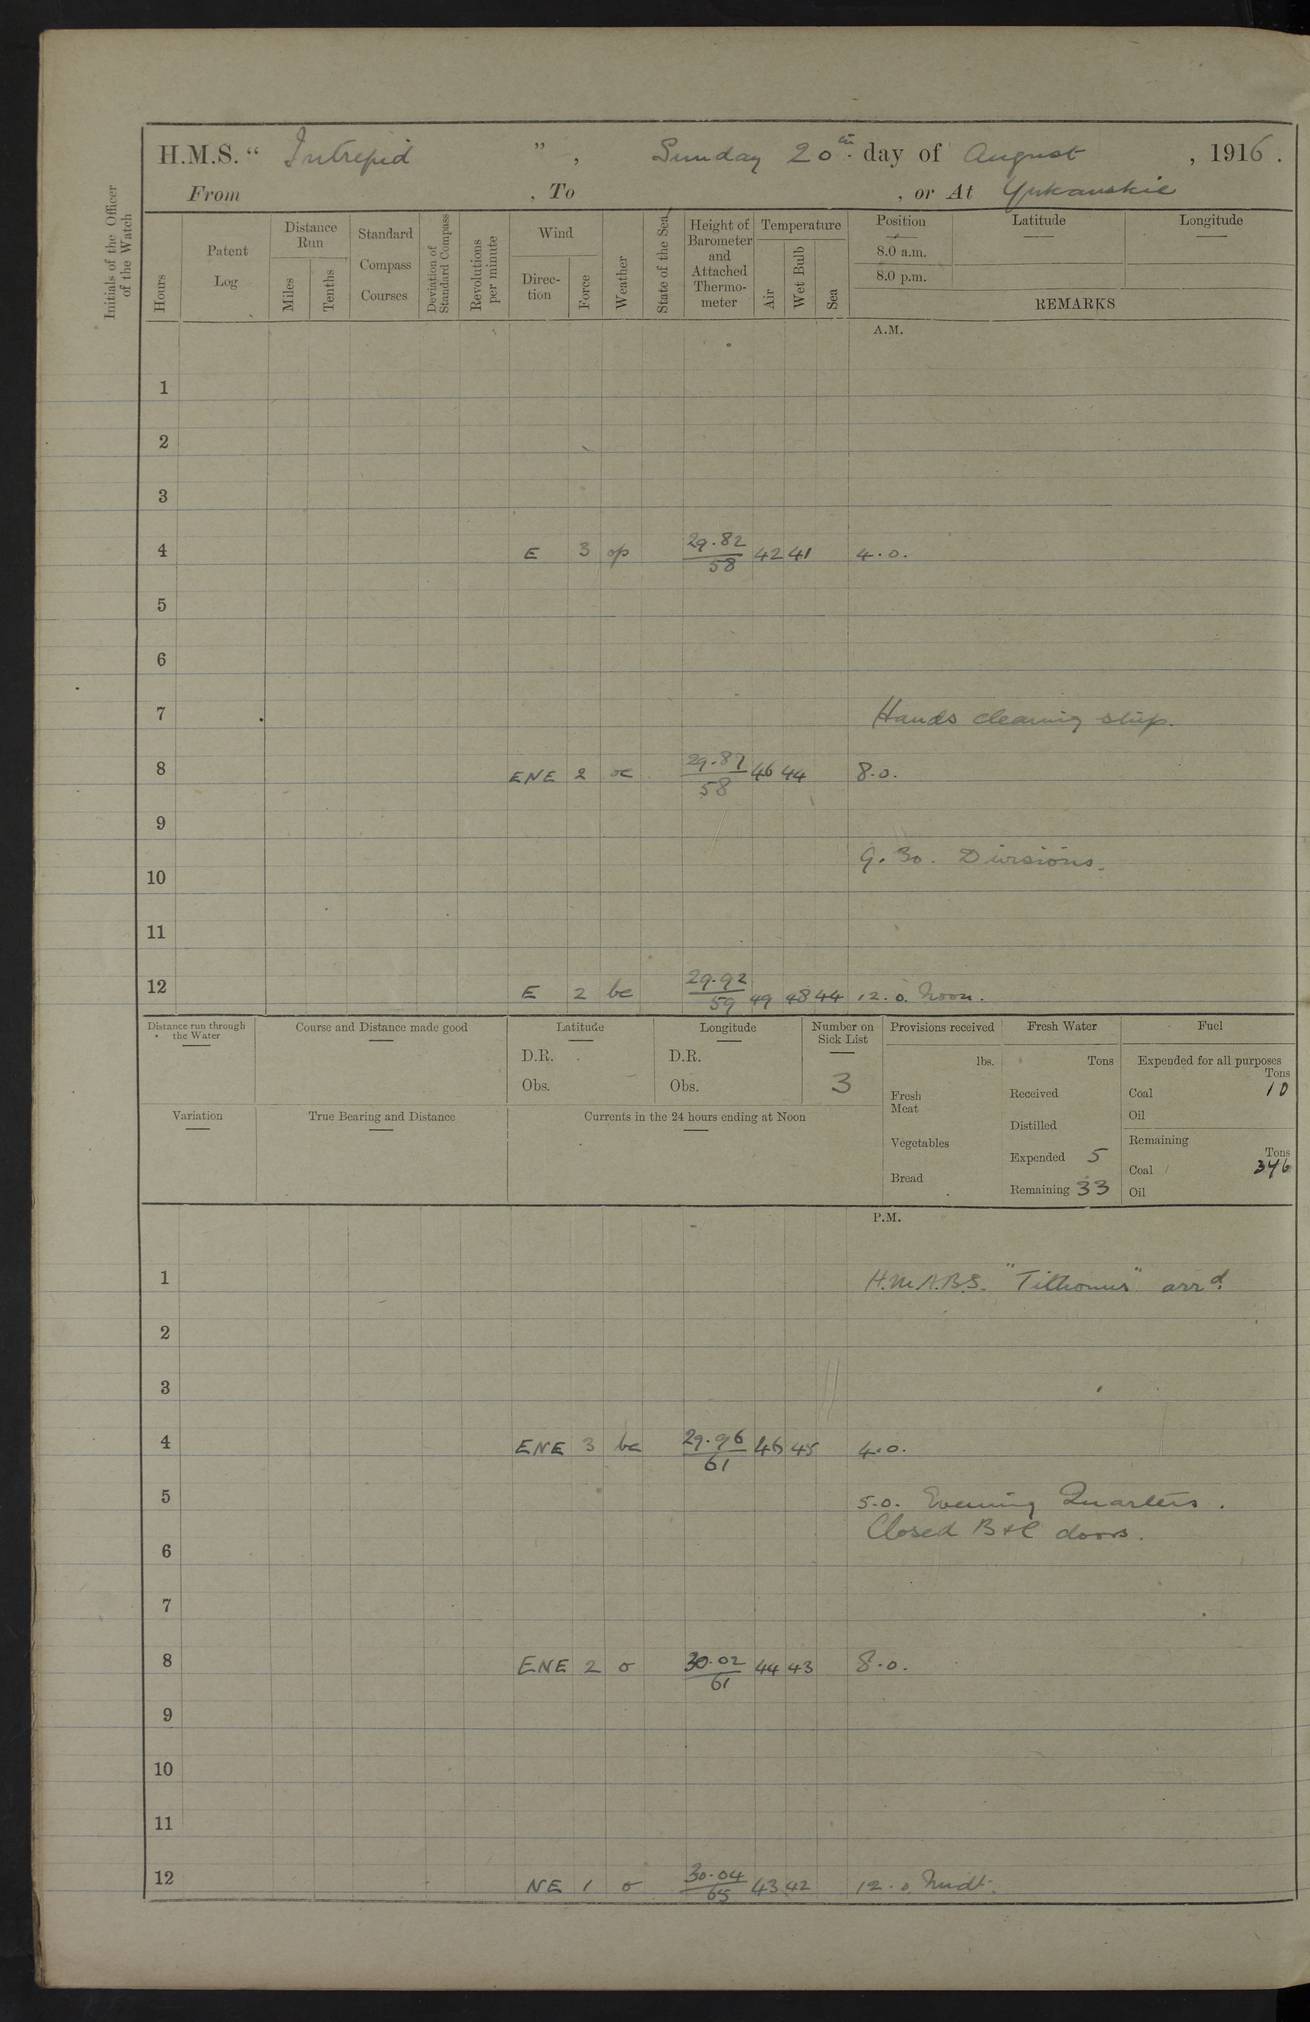 H.M.S. “ Intrepid ” , Sunday 20th. day of August , 1916 .
From , To , or At Yukanskie
Initials of the Officer of the Watch
Hours
Patent Log
Distance Run
Miles
Tenths
Standard Compass Courses
Deviation of Standard Compass
Revolutions per minute
Wind
Direc-tion
Force
Weather
State of the Sea
Height of Barometer and Attached Thermo-meter
Temperature
Air
Wet Bulb
Sea
Position Latitude Longitude
8.0 a.m.
8.0 p.m.
REMARKS
A.M.
1
2
3
4 E 3 op 29.82/58 42 41 4.0.
5
6
7 Hands cleaning ship.
8 ENE 2 oc 29.87/58 46 44 8.0.
9
9.30. Divisions.
10
11
12 E 2 bc 29.92/59 49 48 44 12.0. Noon.
Distance run through the Water
Course and Distance made good
Latitude
D.R.
Obs.
Longitude
D.R.
Obs.
Number on Sick List
3
Provisions received
lbs.
Fresh Meat
Vegetables
Bread
Fresh Water
Tons
Received
Distilled
Expended 5
Remaining 33
Fuel
Expended for all purposes
Tons
Coal 10
Oil
Remaining
Tons
Coal 346
Oil
Variation
True Bearing and Distance
Currents in the 24 hours ending at Noon
P.M.
1 H.M.A.B.S. "Tithonus" arrd.
2
3
4 ENE 3 bc 29.96/61 46 45 4.0.
5 5.0. Evening Quarters.
Closed B & C doors.
6
7
8 ENE 2 o 30.02/61 44 43 8.0.
9
10
11
12 NE 1 o 30.04/65 43 42 12.0. Midt.